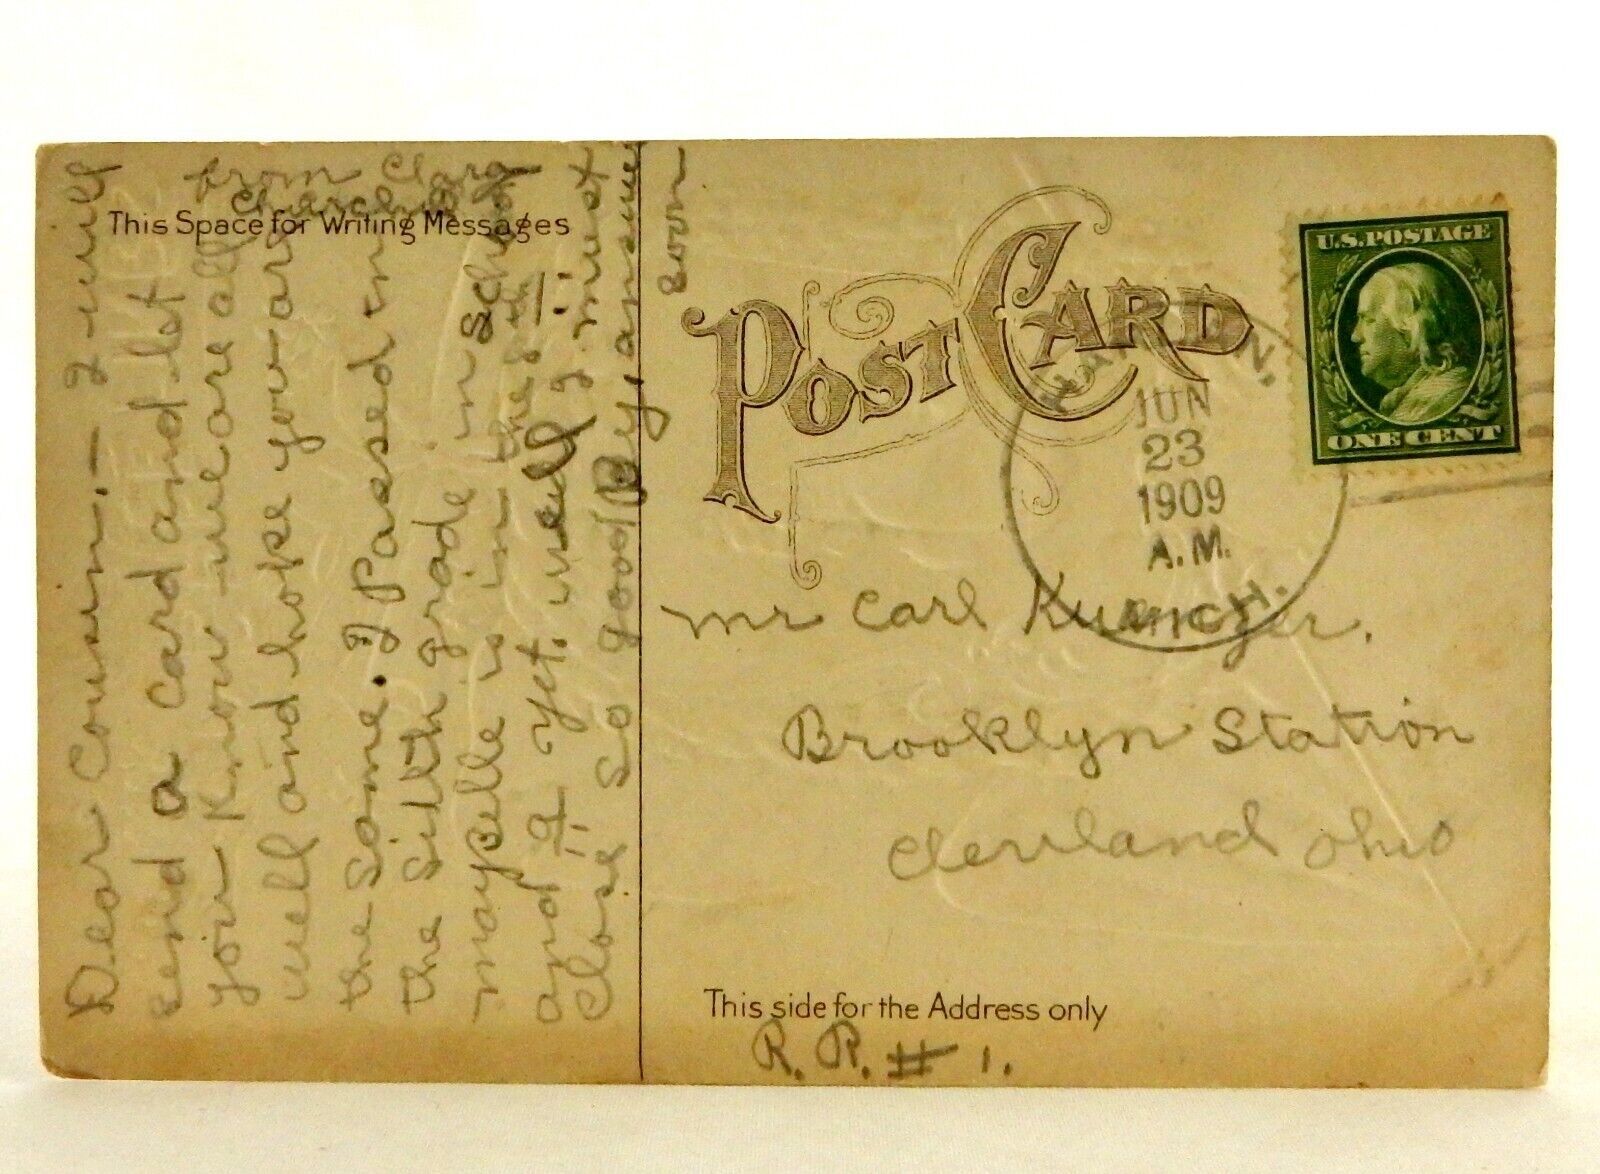 This Space for Writing Messages
Dear Cousin,- I will
send a card and let
you Know we are all
well and hope you are
the same. I Passed in
the Sixth grade in School
maybelle is in the 8th
and 9 yet. well I must
close so good By, answer
soon
from Clara
POST CARD
U.S. POSTAGE
ONE CENT
JUN
23
1909
A.M.
MICH.
Mr Carl
Brooklyn Station
Clevland Ohio
This side for the Address only
R.R. # 1.